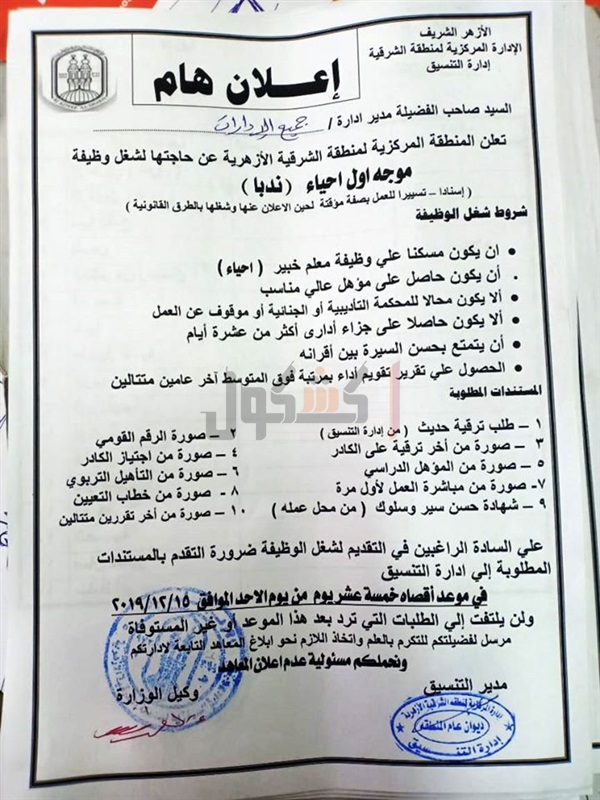 الأزهر الشريف
الإدارة المركزية لمنطقة الشرقية
إدارة التنسيق
إعـــلان هام
السيد صاحب الفضيلة مدير ادارة / جميع الإدارات
تعلن المنطقة المركزية لمنطقة الشرقية الأزهرية عن حاجتها لشغل وظيفة
موجه اول احياء ( ندبا )
( إسنادا - تسييرا للعمل بصفة مؤقتة لحين الاعلان عنها وشغلها بالطرق القانونية )
شروط شغل الوظيفة
ان يكون مسكنا علي وظيفة معلم خبير ( احياء )
أن يكون حاصل على مؤهل عالي مناسب
ألا يكون محالا للمحكمة التأديبية أو الجنائية أو موقوف عن العمل
ألا يكون حاصلا على جزاء أدارى أكثر من عشرة أيام
أن يتمتع بحسن السيرة بين أقرانه
الحصول علي تقرير تقويم أداء بمرتبة فوق المتوسط آخر عامين متتالين
المستندات المطلوبة
١ – طلب ترقية حديث ( من إدارة التنسيق )
٢ – صورة الرقم القومي
٣ – صورة من أخر ترقية على الكادر
٤ – صورة من اجتياز الكادر
٥ – صورة من المؤهل الدراسي
٦ – صورة من التأهيل التربوي
٧- صورة من مباشرة العمل لأول مرة
٨ – صورة من خطاب التعيين
٩ – شهادة حسن سير وسلوك ( من محل عمله )
١٠ – صورة من أخر تقررين متتالين
كشكول
علي السادة الراغبين في التقديم لشغل الوظيفة ضرورة التقدم بالمستندات
المطلوبة إلي ادارة التنسيق
في موعد أقصاه خمسة عشر يوم من يوم الاحد الموافق ٢٠١٩/١٢/١٥
ولن يلتفت إلي الطلبات التي ترد بعد هذا الموعد او غير المستوفاة
مرسل لفضيلتكم للتكرم بالعلم واتخاذ اللازم نحو ابلاغ المعاهد التابعة لادارتكم
ونحملكم مسئولية عدم اعلان المعاهد
مدير التنسيق
وكيل الوزارة
ادارة المركزية لمنطقة الشرقية الأزهرية
ديوان عام المنطقة
إدارة التنسيق